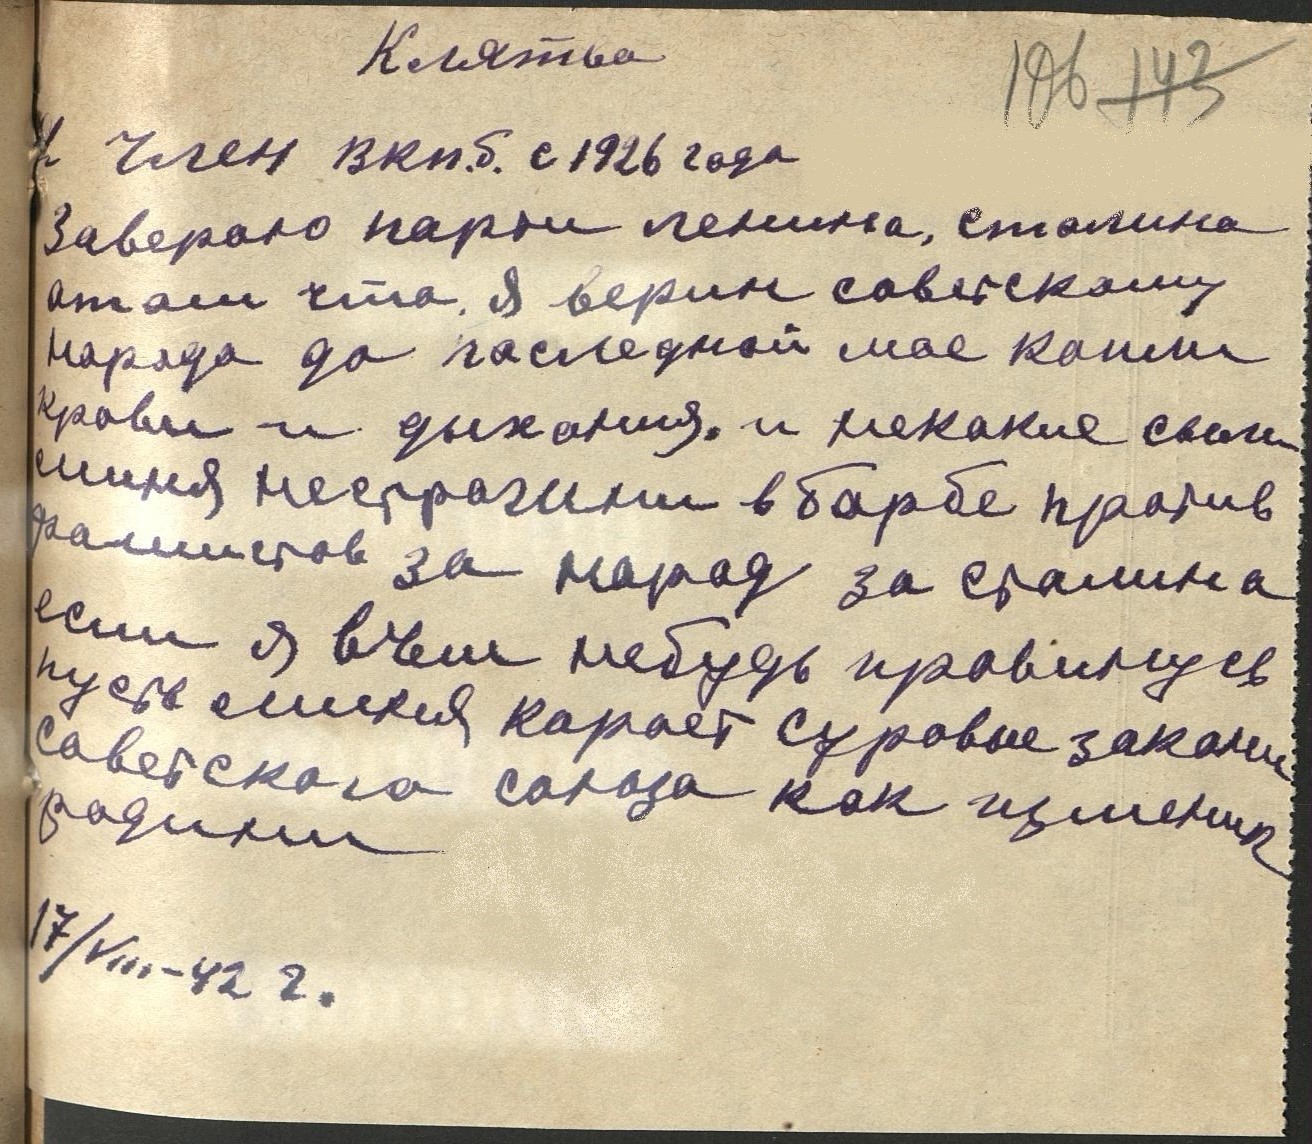 Клятва
106 143
Я Член ВКП.б. с 1926 года
Завераю парти ленина, сталина
атом что. Я верин советскому
народа до последной мое капли
крови и дыхания. и некакие силы
миня нестрашни в барбе против
фашистов за народ за сталина
если я вчем небудь правинусь
пусть миня карает суровые закони
советского союза как изменик
родини
17/VIII-42 г.